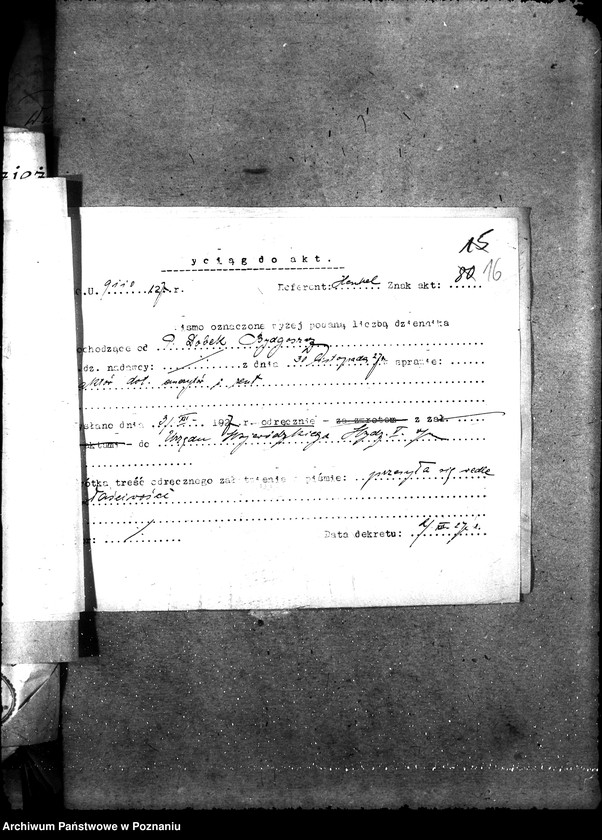 15
16
yciąg do akt.
.U. 9110 .127 r. Referent: Henkel Znak akt: 80
ismo oznaczone wyżej podaną liczbą dziennika
ochodzące od P. Dobek Bydgoszcz
dz. nadawcy: z dnia 30 listopada 27 r. sprawie:
dot.
słano dnia 3/XII 1927 r. odręcznie - za zwrotem - z zał.
aktami - do Urzędu Wojewódzkiego Wydz. I.
ótka treść odręcznego załatwienia w piśmie: przesyła się wedle
łaściwości
Data dekretu: 2/XII 27 r.
Archiwum Państwowe w Poznaniu